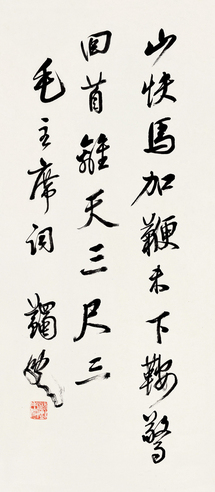 山快马加鞭未下鞍驚
回首離天三尺三
毛主席词